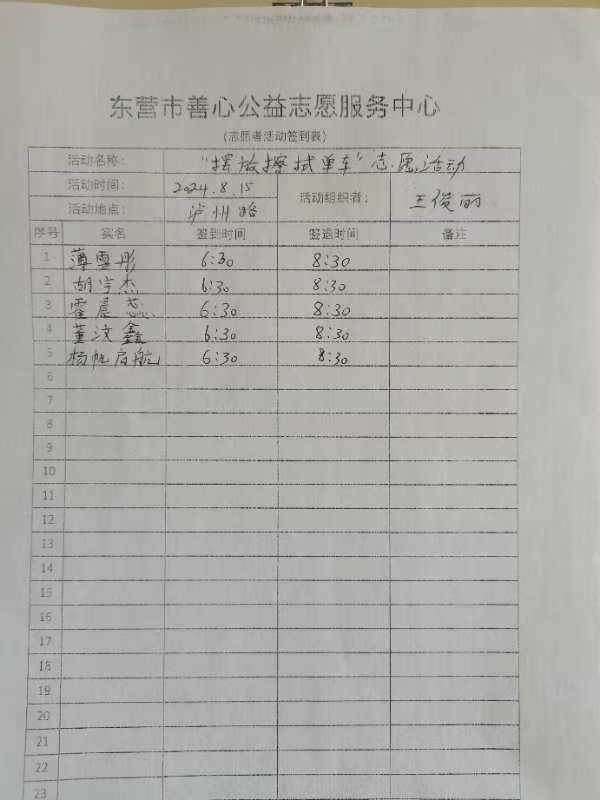 东营市善心公益志愿服务中心
(志愿者活动签到表)
活动名称： “摆放擦拭单车”志愿活动
活动时间： 2024.8.15 活动组织者： 王俊丽
活动地点： 泸州路
序号 实名 签到时间 签退时间 备注
1 薄雪彤 6:30 8:30
2 胡宇杰 6:30 8:30
3 霍晨蕊 6:30 8:30
4 董汶鑫 6:30 8:30
5 杨帆启航 6:30 8:30
6
7
8
9
10
11
12
13
14
15
16
17
18
19
20
21
22
23